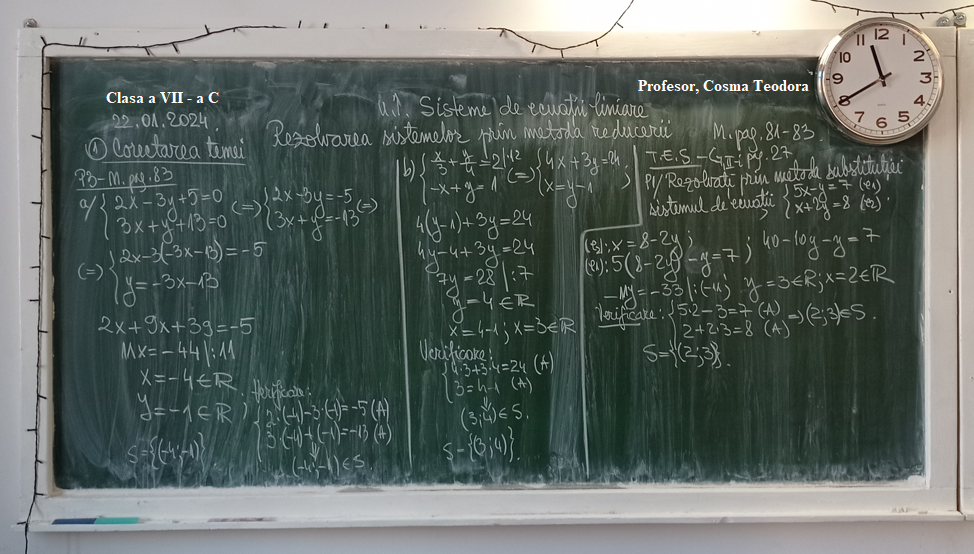 Clasa a VII - a C
Profesor, Cosma Teodora
22.01.2024.
Sisteme de ecuații liniare
Rezolvarea sistemelor prin metoda reducerii
M. pag. 81-83.
① Corectarea temei
P3-M. pag. 83
a) { 2x-3y+5=0 (=>) { 2x-3y=-5
3x+y+13=0 3x+y=-13 (=>)
(=>) { 2x-3(-3x-13)=-5
y=-3x-13
2x+9x+39=-5
11x=-44 |:11
x=-4∈ℝ
y=-1∈ℝ
Verificare:
{ 2·(-4)-3·(-1)=-5 (A)
3·(-4)+(-1)=-13 (A)
⇓
(-4;-1)∈S.
S={(-4;-1)}
b) { x/3+y/4=2 |·12 (=>) { 4x+3y=24
-x+y=1 x=y-1 ;
4(y-1)+3y=24
4y-4+3y=24
7y=28 |:7
y=4∈ℝ
x=4-1; x=3∈ℝ
Verificare:
{ 4·3+3·4=24 (A)
3=4-1 (A)
⇓
(3;4)∈S.
S={(3;4)}.
T.E.S. - pg. 27
P1/ Rezolvați prin metoda substituției
sistemul de ecuații { 5x-y=7 (e1)
x+2y=8 (e2)
(e2): x=8-2y ;
(e1): 5(8-2y)-y=7 ; 40-10y-y=7
-11y=-33 |:(-11) y=3∈ℝ; x=2∈ℝ
Verificare: { 5·2-3=7 (A) => (2;3)∈S.
2+2·3=8 (A)
S={(2;3)}.
11 12 1
10 2
9 3
8 4
7 6 5